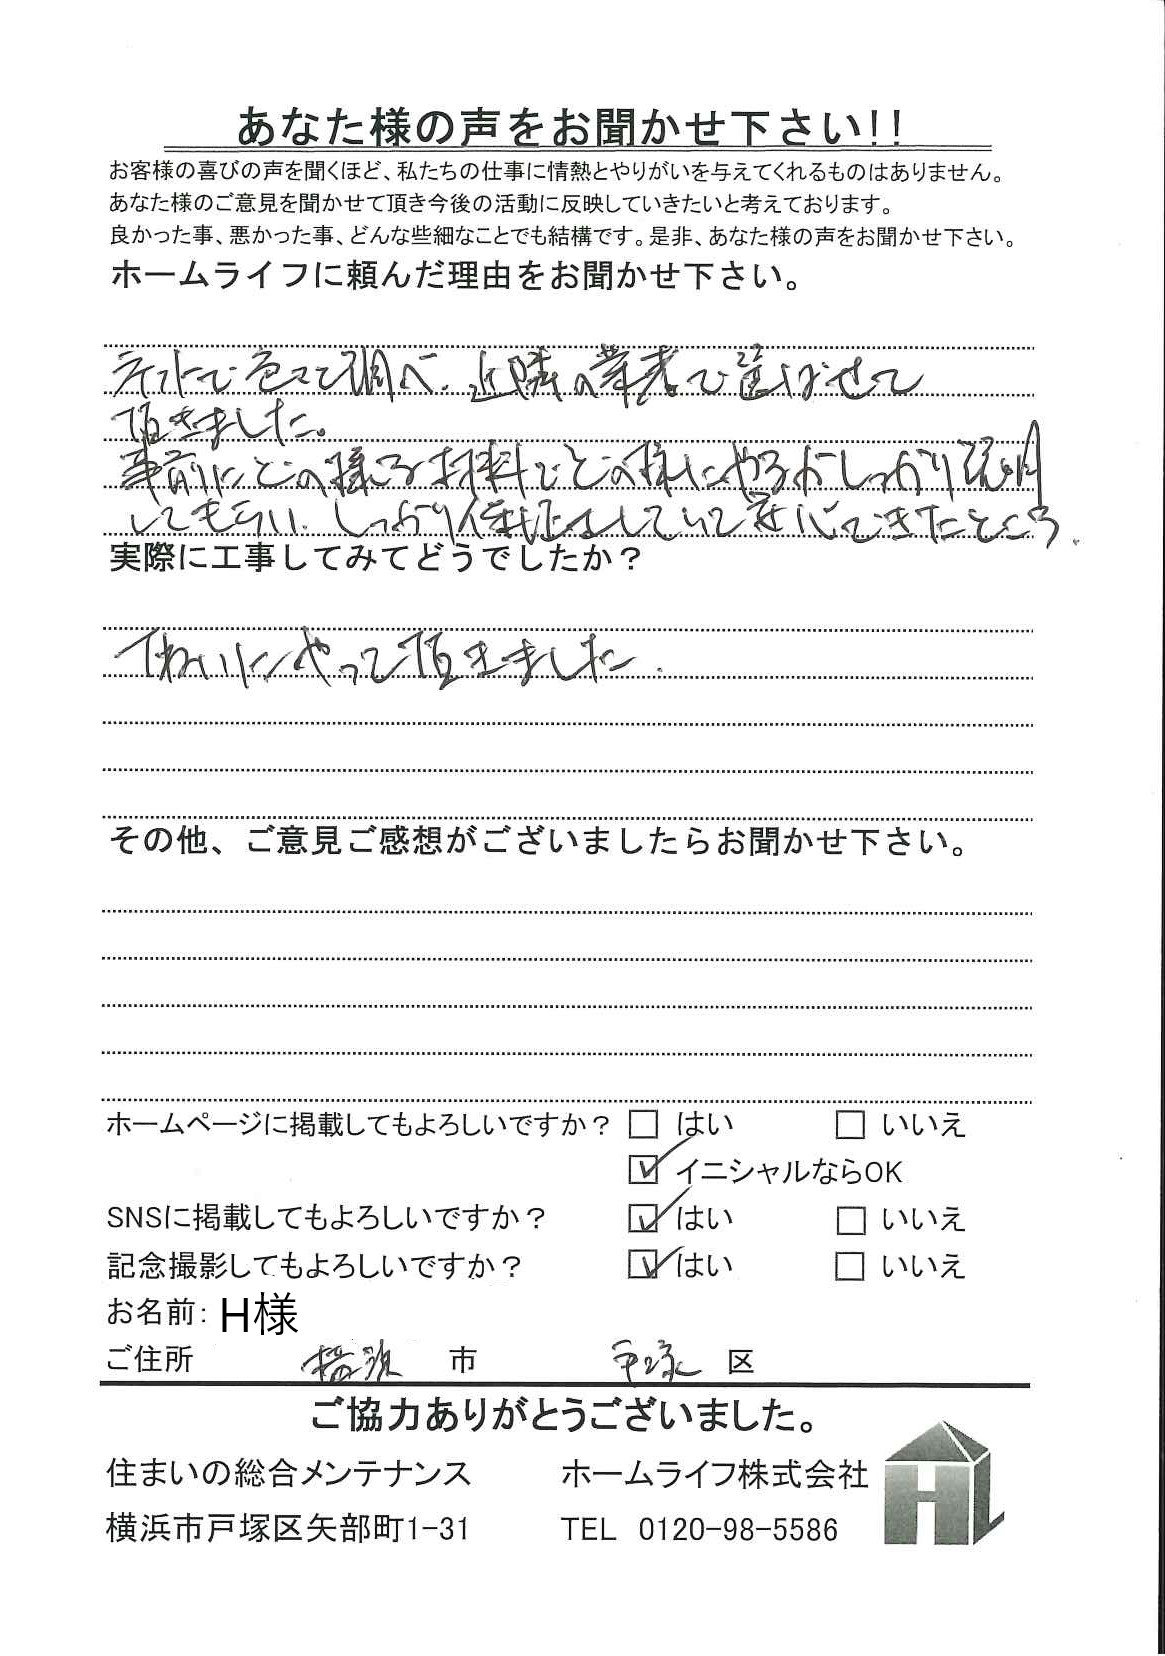 あなた様の声をお聞かせ下さい!!
お客様の喜びの声を聞くほど、私たちの仕事に情熱とやりがいを与えてくれるものはありません。
あなた様のご意見を聞かせて頂き今後の活動に反映していきたいと考えております。
良かった事、悪かった事、どんな些細なことでも結構です。是非、あなた様の声をお聞かせ下さい。
ホームライフに頼んだ理由をお聞かせ下さい。
ネットで色々と調べ、近隣の業者で選ばせて
頂きました。
事前にどの様な材料でどの様にやるかしっかり説明
してもらい、しっかり保証もしていて安心できたところ。
実際に工事してみてどうでしたか？
ていねいにやって頂きました。
その他、ご意見ご感想がございましたらお聞かせ下さい。
ホームページに掲載してもよろしいですか？ □ はい □ いいえ
☑ イニシャルならOK
SNSに掲載してもよろしいですか？ ☑ はい □ いいえ
記念撮影してもよろしいですか？ ☑ はい □ いいえ
お名前: H様
ご住所 横浜 市 戸塚 区
ご協力ありがとうございました。
住まいの総合メンテナンス ホームライフ株式会社
横浜市戸塚区矢部町1-31 TEL 0120-98-5586
HL